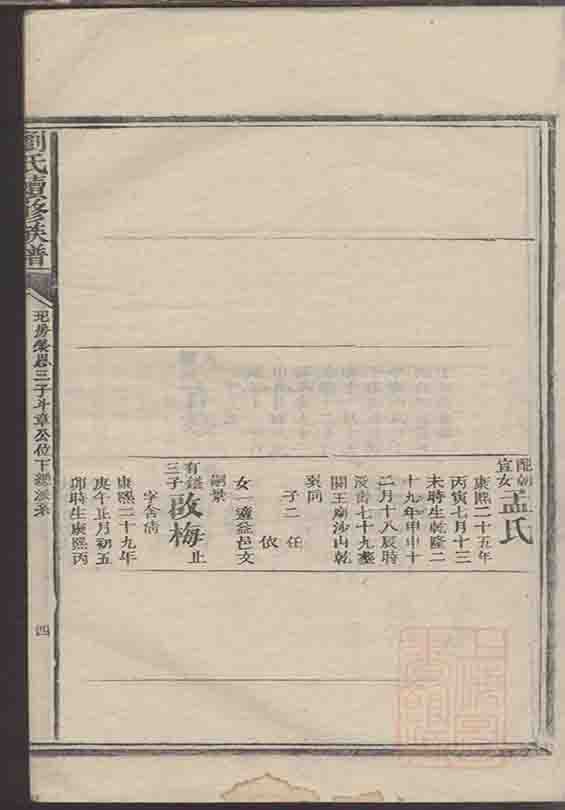 配朝
宣女孟氏
康熙二十五年
丙寅七月十三
未時生乾隆二
十九年甲申十
二月十八辰時
歿壽七十九塟
關王廟沙山乾
巽向
子二 任
依
女一適益邑文
嗣景
有鎰
三子啟梅 止
字含清
康熙二十九年
庚午正月初五
卯時生康熙丙
劉氏續修族譜
三子斗章公位下
四